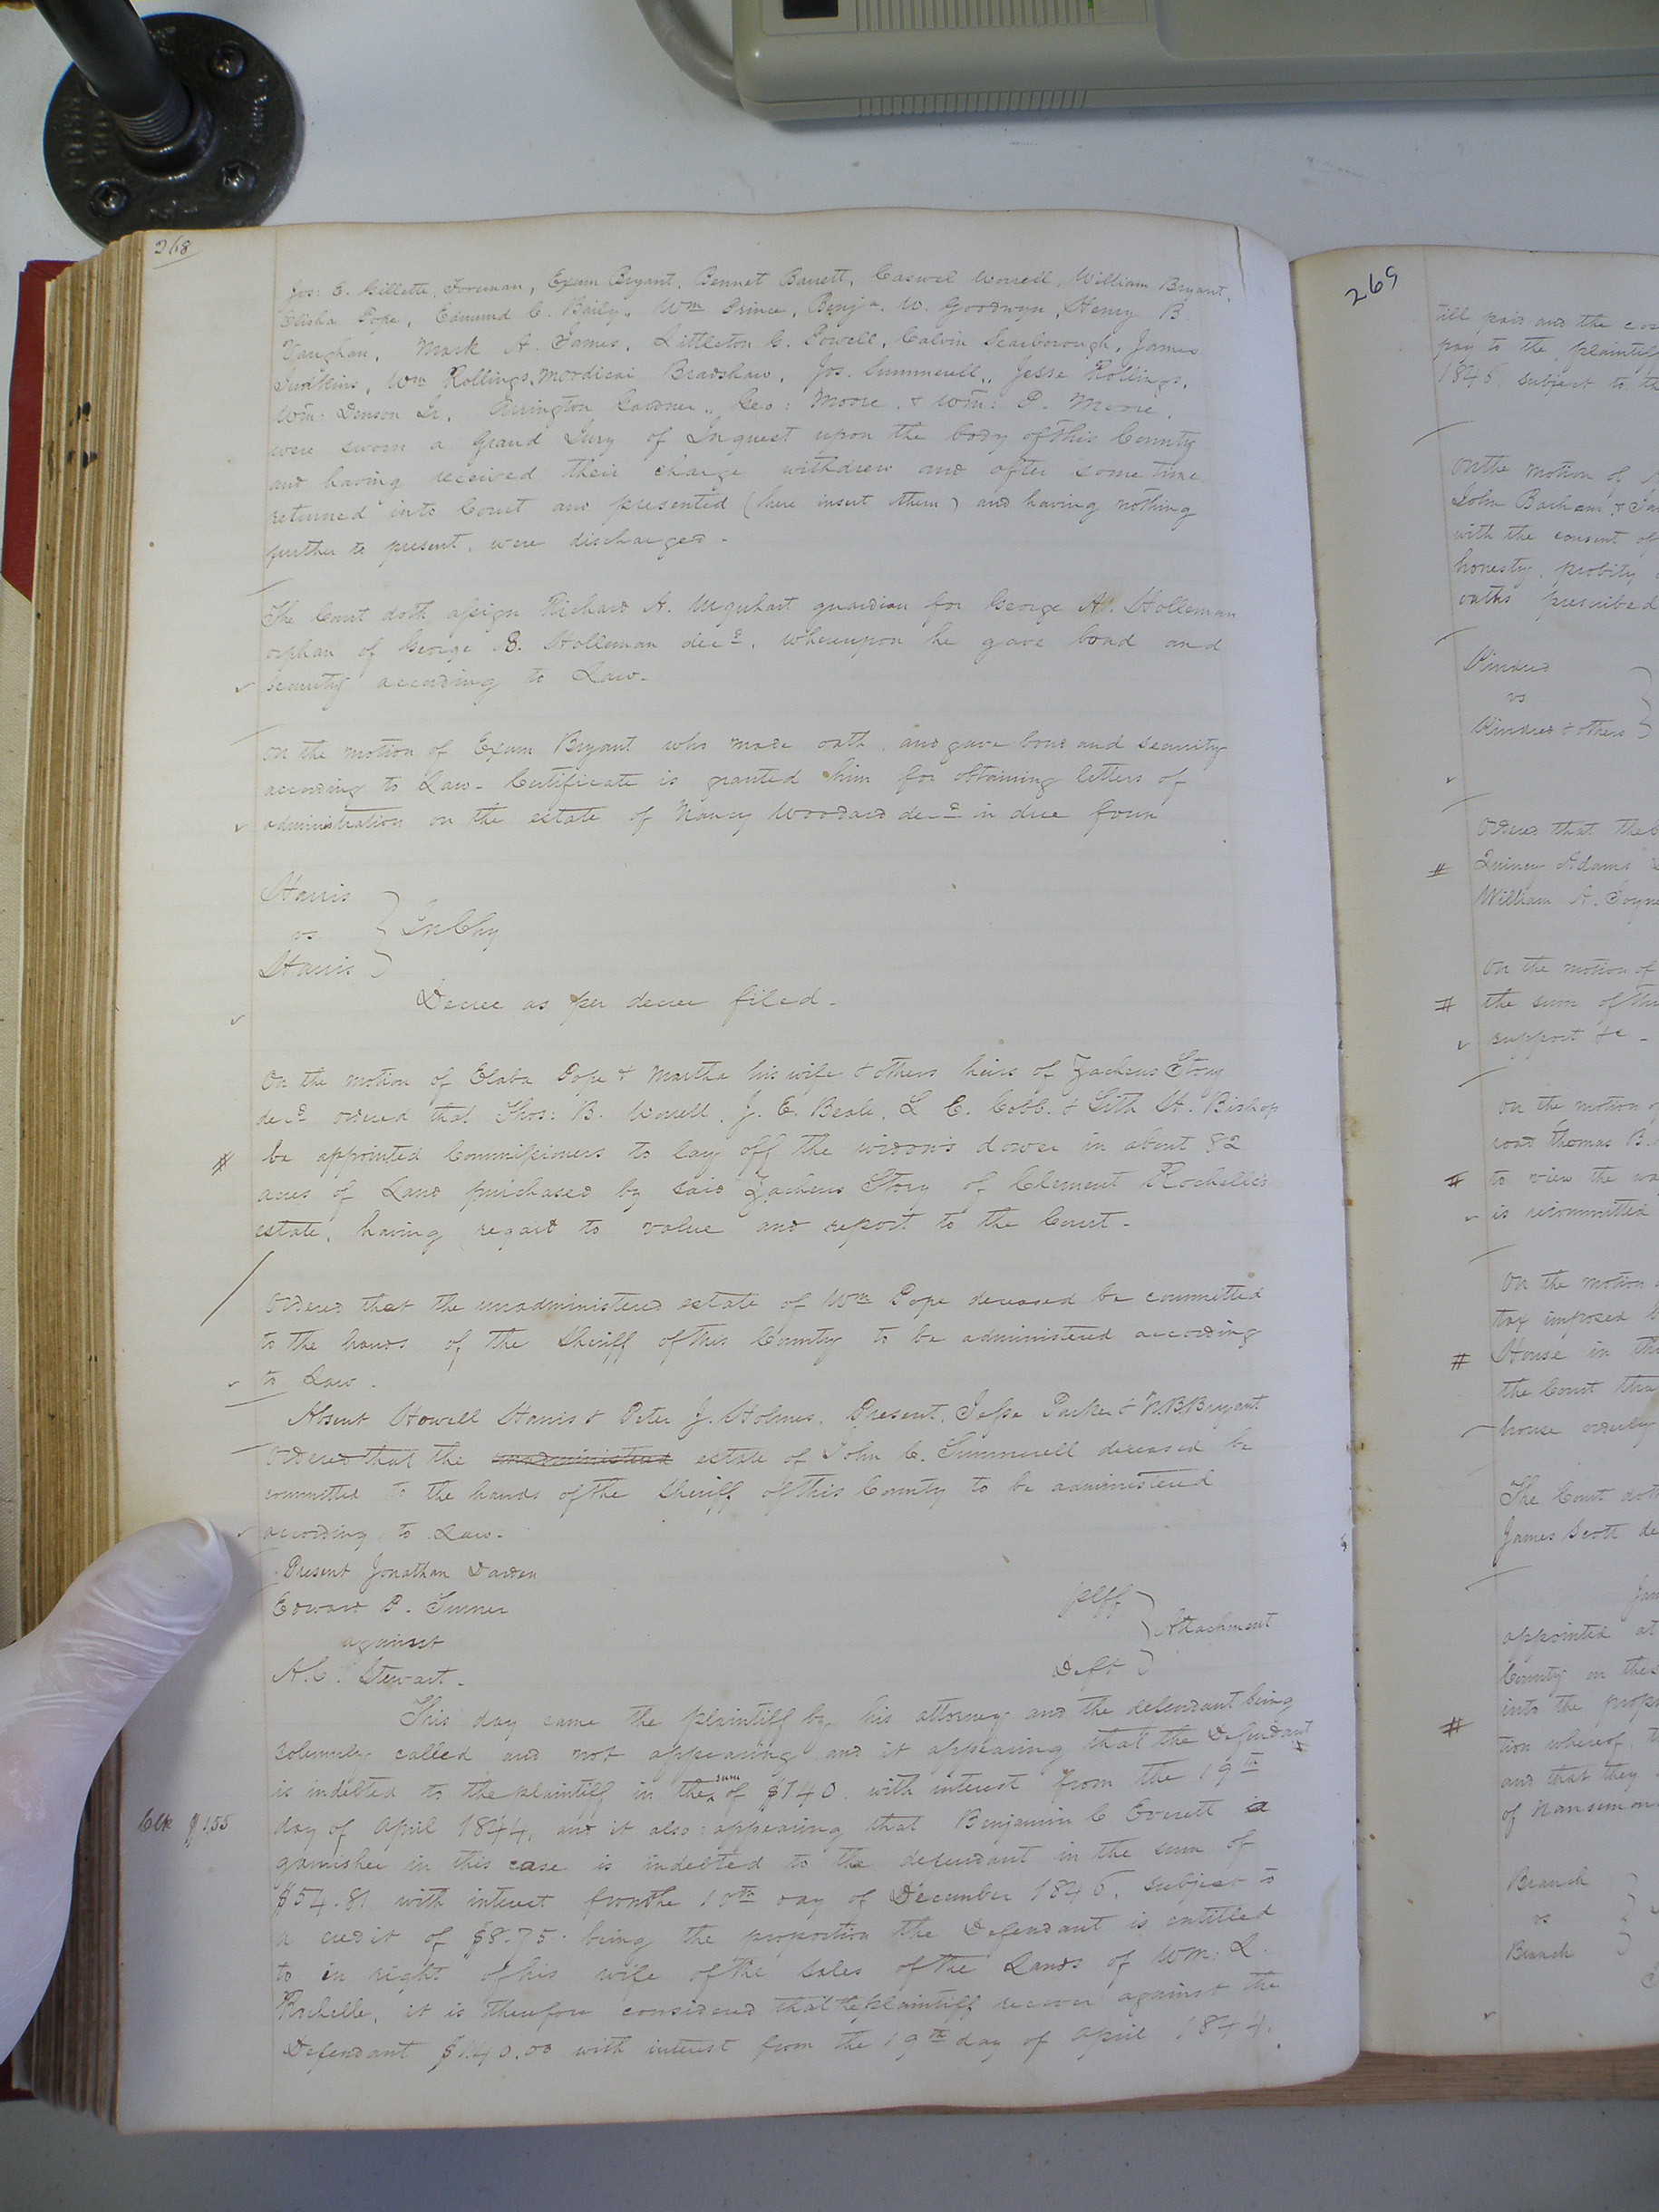 268
Jos: E. Gillette, Foreman, Exum Bryant, Bennet Barrett, Caswel Worrell, William Bryant,
Elisha Pope, Edmund C. Baily, Wm Prince, Benja. W. Goodwyn, Henry B
Vaughan, Mark A. James, Littleton C. Powell, Calvin Scarborough, James
Judkins, Wm Rollings, Mordicai Bradshaw, Jos. Summerell, Jesse Rollings,
Wm: Denson Sr, Arrington Gardner, Geo: Moore, & Wm: P. Moore,
were sworn a Grand Jury of Inquest upon the body of this County
and having received their charge withdrew and after some time
returned into Court and presented (here insert them) and having nothing
further to present, were discharged -
The Court doth assign Richard A. Urquhart guardian for George A. Holleman
orphan of George B. Holleman decd, whereupon he gave bond and
security according to Law -
On the motion of Exum Bryant who made oath, and gave bond and security
according to Law - Certificate is granted him for obtaining letters of
administration on the estate of Nancy Woodard decd in due form
Harris
vs
Harris
In Chy
Decree as per decree filed -
On the motion of Elaba Pope & Martha his wife & others heirs of Zacheus Story
decd ordered that Thos: B. Worrell, J. E. Beale, L E. Cobb & Lith H. Bishop
# be appointed Commissioners to lay off the widow's dower in about 82
acres of Land purchased by said Zacheus Story of Clement Rochelle's
estate, having regard to value and report to the Court -
Ordered that the unadministered estate of Wm Pope deceased be committed
to the hands of the Sheriff of this County to be administered according
to Law -
Absent Howell Harris & Peter J. Holmes, Present, Jesse Parker & N.B.Bryant
Ordered that the unadministered estate of John C. Summerell deceased be
committed to the hands of the Sheriff of this County to be administered
according to Law -
Present Jonathan Darden
Edward P. Turner plff
against Attachment
A.C. Stewart - Deft
This day came the plaintiff by his attorney and the defendant being
solemnly called and not appearing and it appearing that the Defendant
is indebted to the plaintiff in the sum of $140. with interest from the 19th
Clk $1.55 day of April 1844, and it also appearing that Benjamin C Everett a
garnishee in this case is indebted to the defendant in the sum of
$54.81 with interest from the 10th day of December 1846, subject to
a credit of $8.75. being the proportion the Defendant is entitled
to in right of his wife of the sales of the Lands of Wm: L.
Rochelle, it is therefore considered that the plaintiff recover against the
Defendant $140.00 with interest from the 19th day of April 1844.
269
till paid and the
pay to the plaintiff
1846, subject to
On the motion of
John Barham &
with the consent of
honesty, probity
oaths prescribed
Kindred
vs
Kindred & others
Ordered that the
# Quincy Adams
William A.
On the motion of
# the sum of
support &c -
On the motion
road Thomas B.
# to view the
is recommitted
On the motion
tax imposed
# House in
the Court
house orderly
The Court doth
James Scott
appointed at
County on the
into the
# tion whereof,
and that they
of Nansemond
Branch
vs
Branch